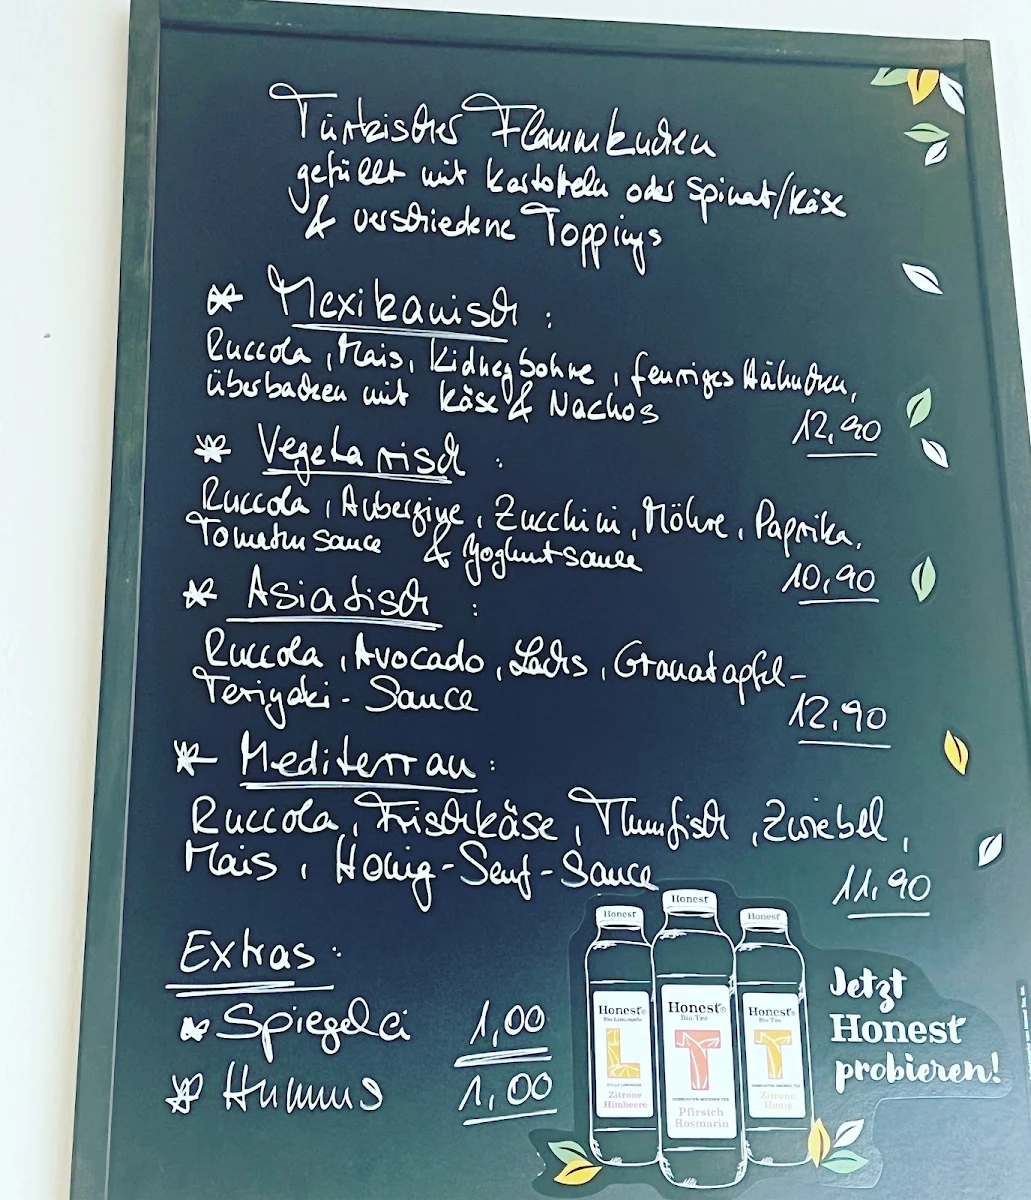 Türkischer Flammkuchen
gefüllt mit Kartoffeln oder Spinat/Käse
& verschiedene Toppings
* Mexikanisch :
Ruccola, Mais, Kidneybohne, feuriges Hähnchen,
überbacken mit Käse & Nachos
12,90
* Vegetarisch :
Ruccola, Aubergine, Zucchini, Möhre, Paprika,
Tomatensauce & Yoghurtsauce
10,90
* Asiatisch :
Ruccola, Avocado, Lachs, Granatapfel-
Teriyaki-Sauce
12,90
* Mediterran :
Ruccola, Frischkäse, Thunfisch, Zwiebel,
Mais, Honig-Senf-Sauce
11,90
Extras :
* Spiegelei 1,00
* Hummus 1,00
Honest
Honest
Honest
Honest
Bio Limonade
L
Zitrone
Himbeere
Honest
Bio Tee
T
Pfirsich
Rosmarin
Honest
Bio Tee
T
Zitrone
Honig
Jetzt
Honest
probieren!